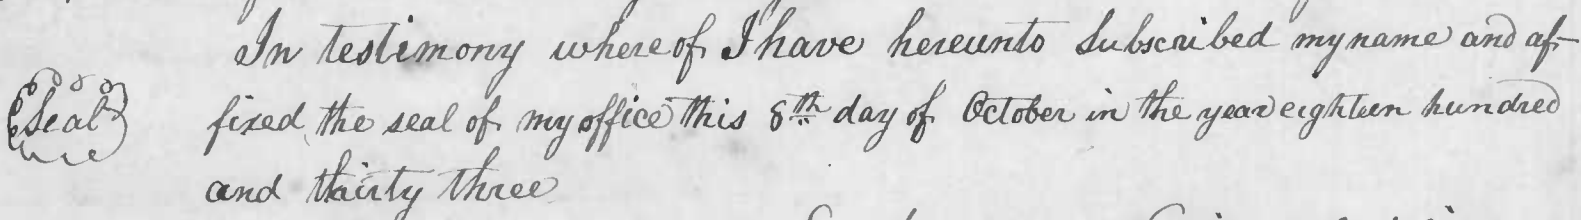 In testimony whereof I have hereunto Subscribed my name and af-
Seal
fixed the seal of my office this 8th day of October in the year eighteen hundred
and thirty three